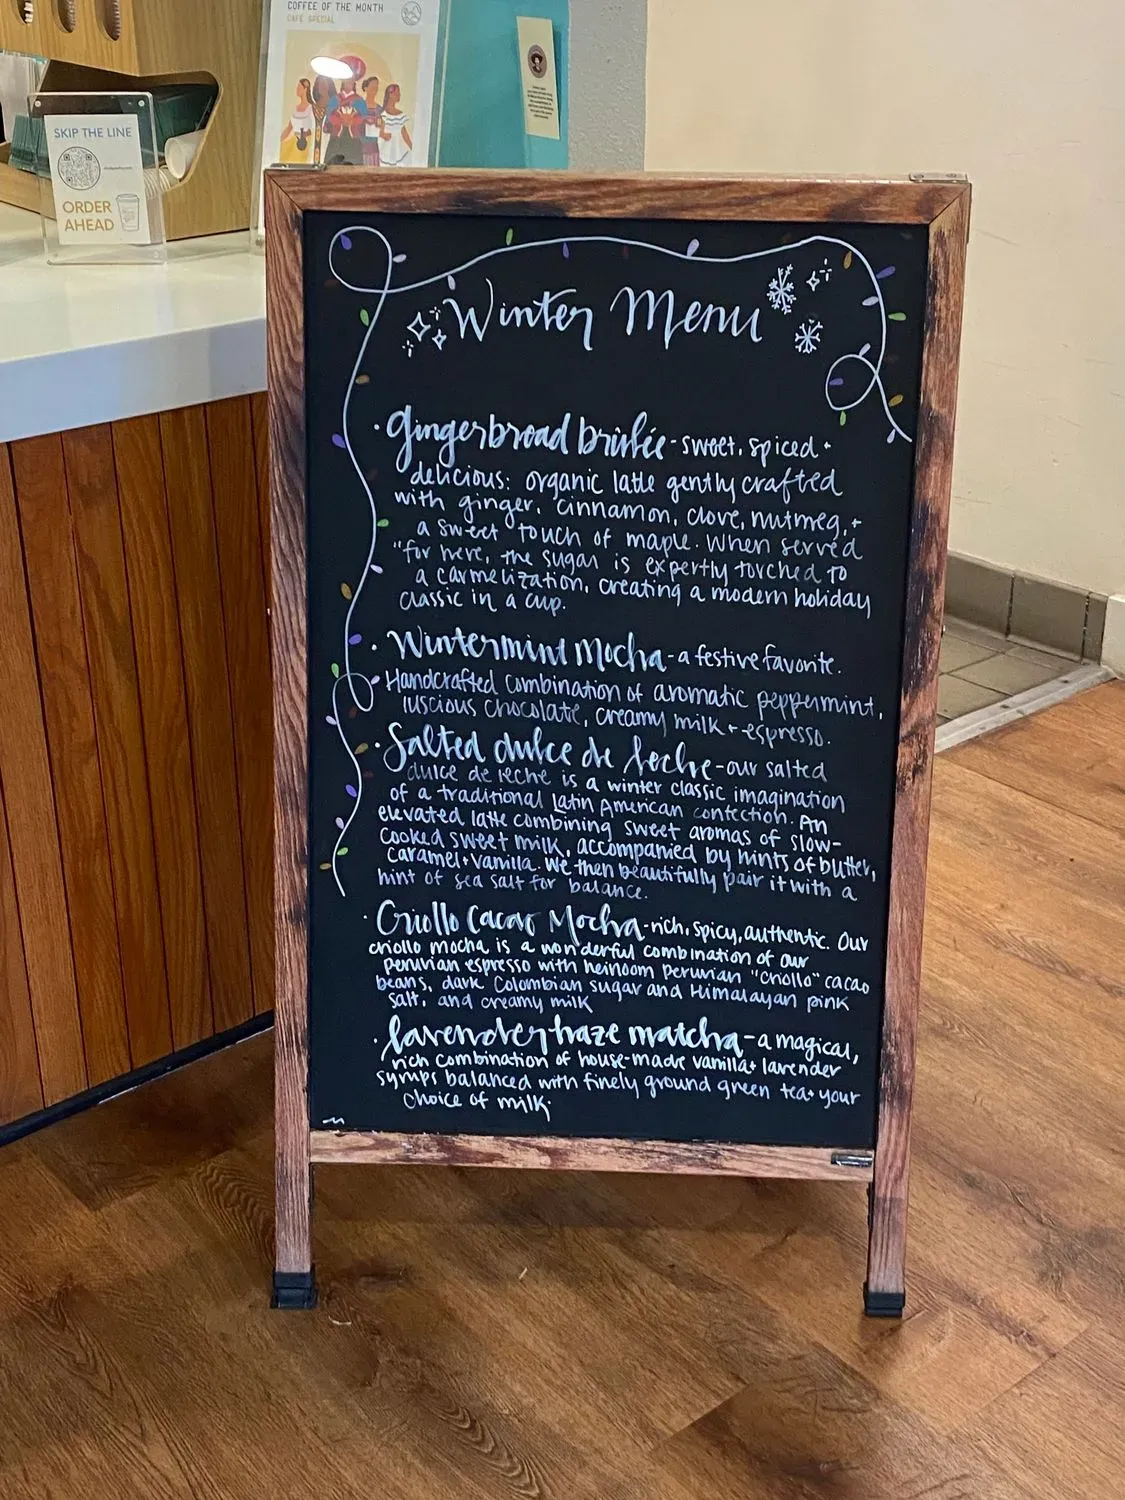 COFFEE OF THE MONTH
CAFE SPECIAL
SKIP THE LINE
ORDER
AHEAD
Winter Menu
· Gingerbread brûlée - sweet, spiced +
delicious: organic latte gently crafted
with ginger, cinnamon, clove, nutmeg, +
a sweet touch of maple. When served
"for here, the sugar is expertly torched to
a carmelization, creating a modern holiday
classic in a cup.
· Wintermint Mocha - a festive favorite.
Handcrafted combination of aromatic peppermint,
luscious chocolate, creamy milk + espresso.
· Salted dulce de leche - our salted
dulce de leche is a winter classic imagination
of a traditional Latin American confection. An
elevated latte combining sweet aromas of slow-
cooked sweet milk, accompanied by hints of butter,
caramel + vanilla. We then beautifully pair it with a
hint of sea salt for balance.
· Criollo Cacao Mocha - rich, spicy, authentic. Our
criollo mocha is a wonderful combination of our
peruvian espresso with heirloom peruvian "criollo" cacao
beans, dark Colombian sugar and Himalayan pink
salt, and creamy milk
· lavender haze matcha - a magical,
rich combination of house-made vanilla + lavender
syrups balanced with finely ground green tea + your
choice of milk.